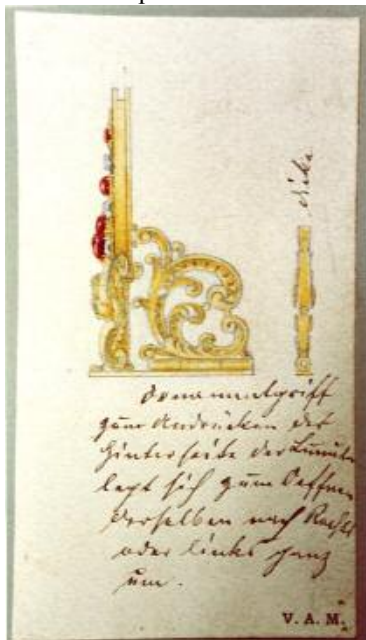 Ornamentgriff
zum Andrücken der
Hinterseite der
legt sich zum Oeffnen
derselben nach Rechts
oder links ganz
um.
V. A. M.